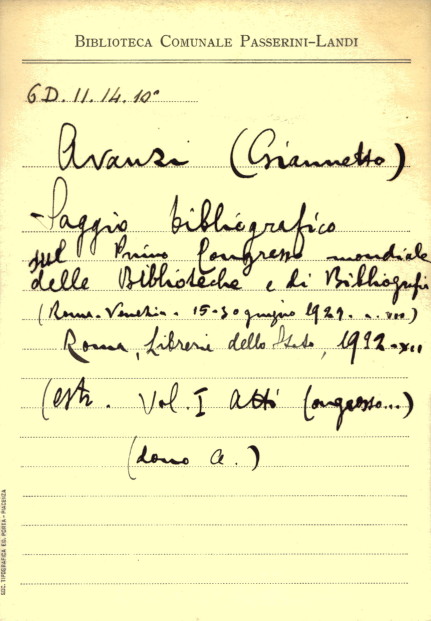 BIBLIOTECA COMUNALE PASSERINI-LANDI
6D. 11. 14. 10°
Avanzi (Giannetto)
Saggio bibliografico
sul Primo Congresso mondiale
delle Biblioteche e di Bibliografia
(Roma-Venezia - 15-30 giugno 1929. a. VII)
Roma, Libreria dello Stato, 1932-XII
(estr. Vol. I Atti Congresso...)
(dono A.)
SOC. TIPOGRAFICA ED. PORTA - PIACENZA